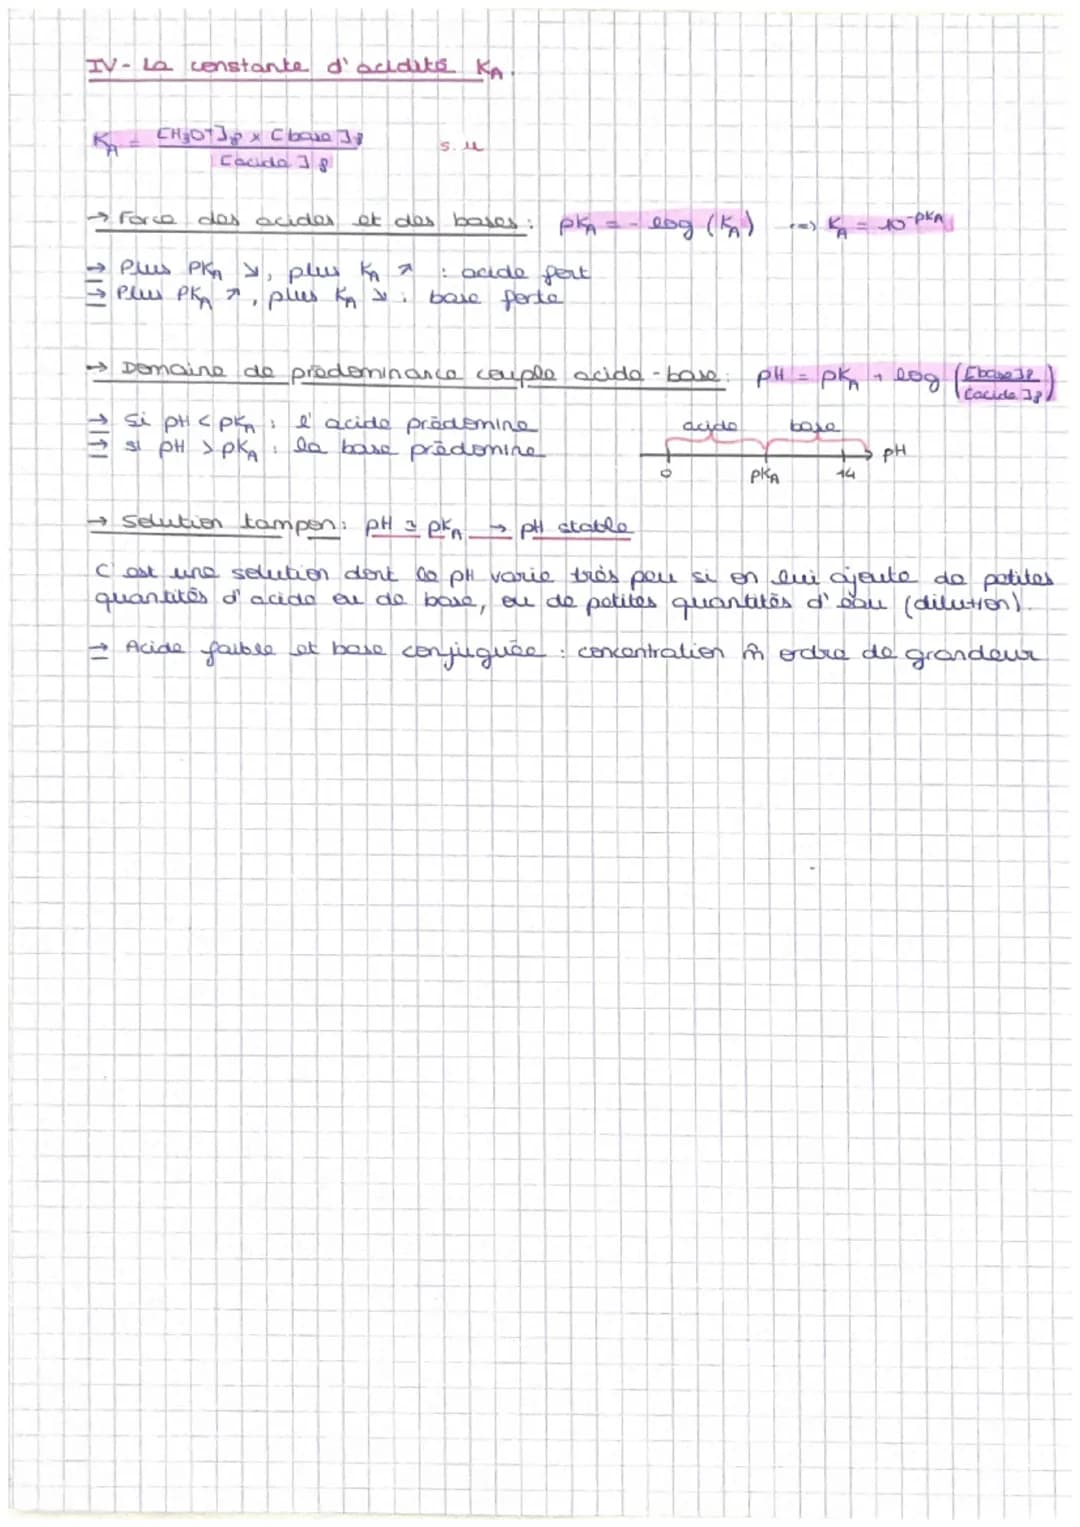 IV - La constante d'acidité KA.
KA = [H3O+]f x [base]f / [acide]f s.u
→ Force des acides et des bases : pKA = - log (KA) => KA = 10^-pKA
→ Plus PKA ↘, plus KA ↗ : acide fort
→ Plus PKA ↗, plus KA ↘ : base forte
→ Domaine de prédominance couple acide-base : pH = pKA + log ([base]f / [acide]f)
→ Si pH < pKA : l'acide prédomine
→ si pH > pKA : la base prédomine
acide base
0 PKA 14 pH
→ Solution tampon : pH ≃ pKA → pH stable
C'est une solution dont le pH varie très peu si on lui ajoute de petites
quantités d'acide ou de base, ou de petites quantités d'eau (dilution).
→ Acide faible et base conjuguée : concentration m̂ ordre de grandeur